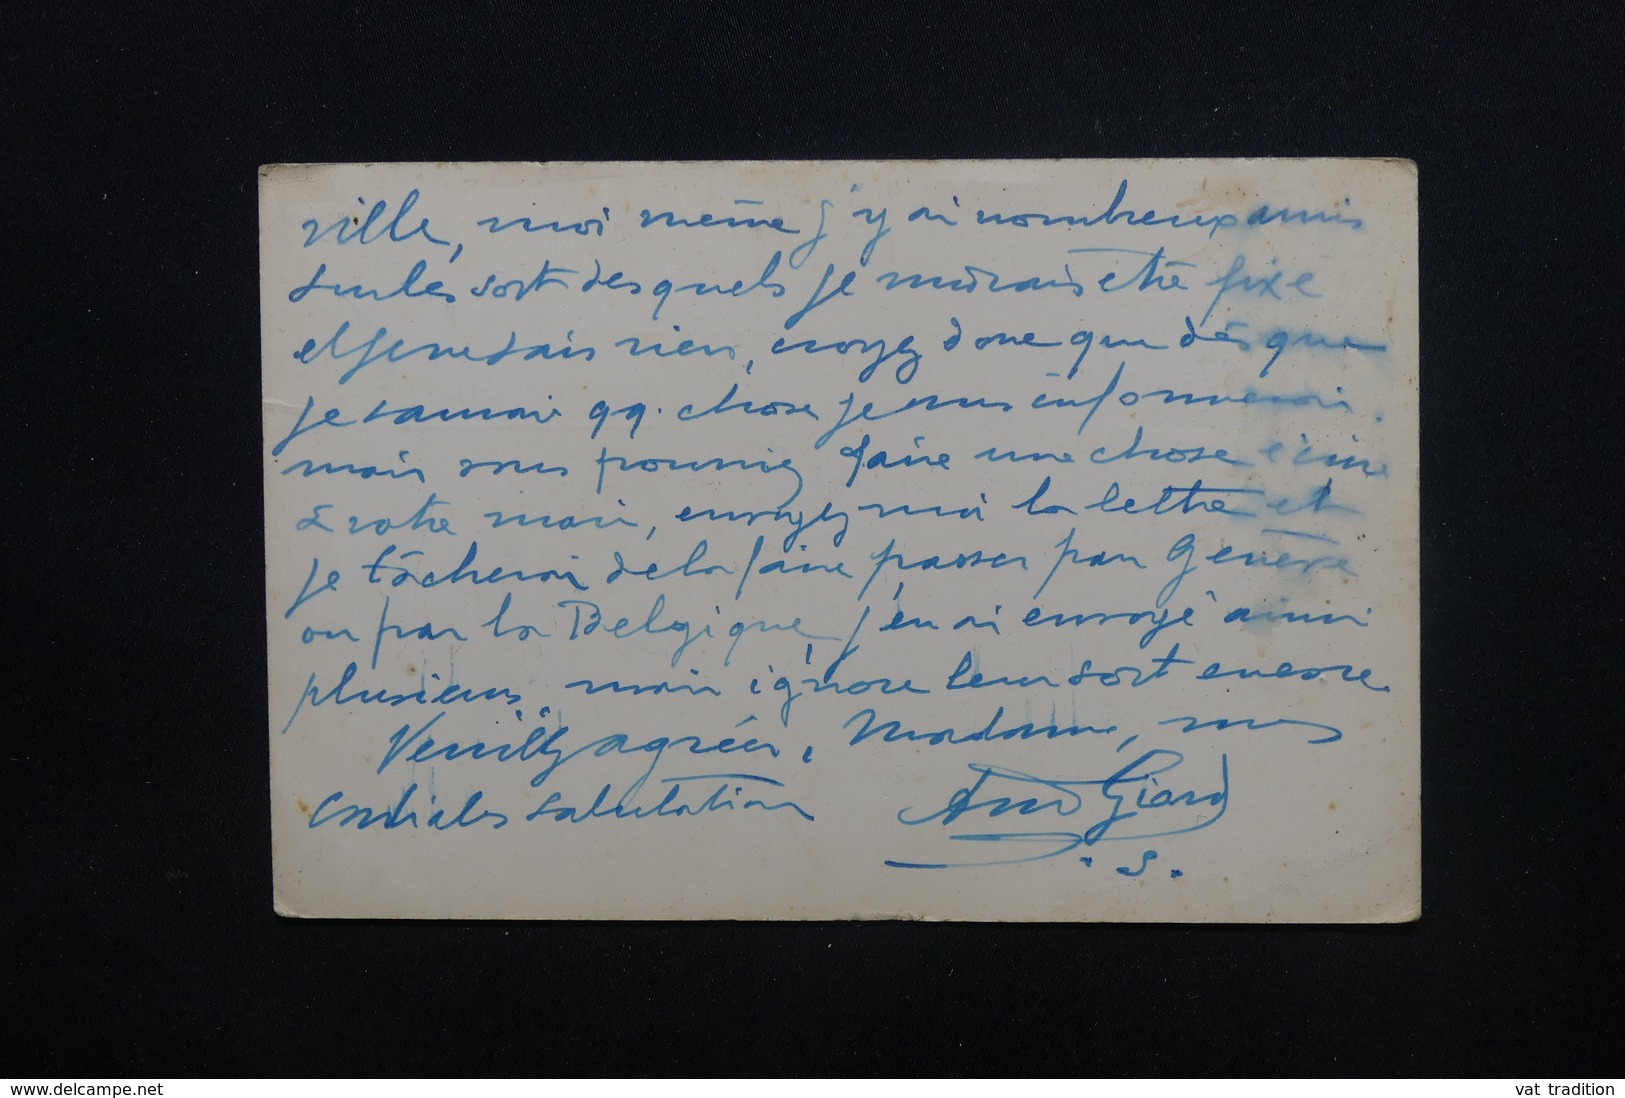 ville, moi même j'y ai nombreux amis
sur les sort desquels je voudrais être fixé
et je ne sais rien, croyez donc que dès que
je saurai qq. chose, je vous informerai.
mais vous pourriez faire une chose écrire
à votre mari, envoyez moi la lettre et
je tâcherai de la faire passer par Genève
ou par la Belgique, j'en ai envoyé ainsi
plusieurs, mais ignore leur sort encore.
Veuillez agréer, Madame, mes
cordiales salutations
Giard
. S.
www.delcampe.net
vat tradition